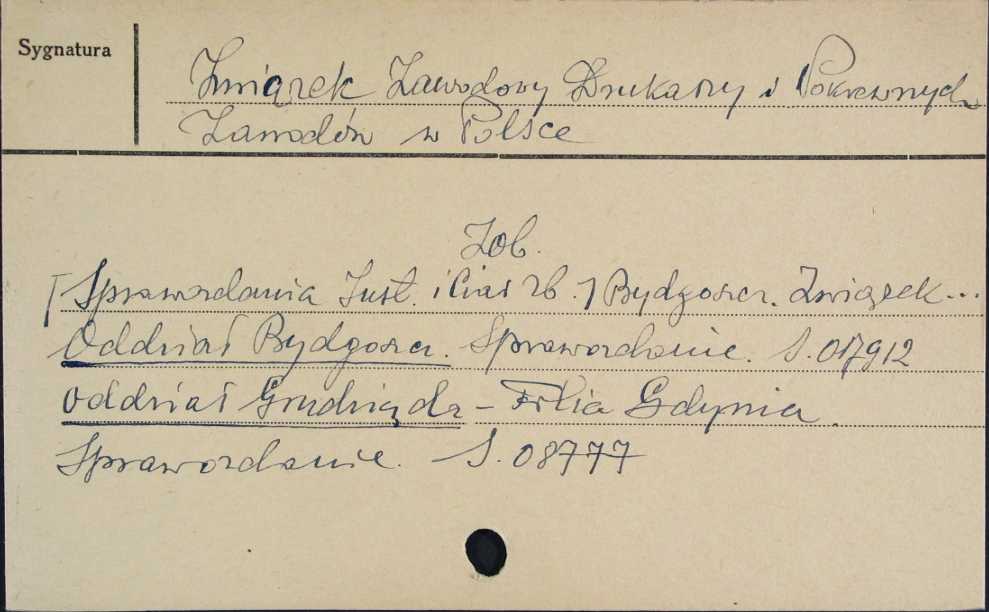 Sygnatura
Związek Zawodowy Drukarzy i Pokrewnych
Zawodów w Polsce
Zob.
[Sprawozdania Inst. i Ciał zb.] Bydgoszcz. Związek...
Oddział Bydgoszcz. Sprawozdanie. S.017912
Oddział Grudziądz - Filia Gdynia.
Sprawozdanie. S.08777